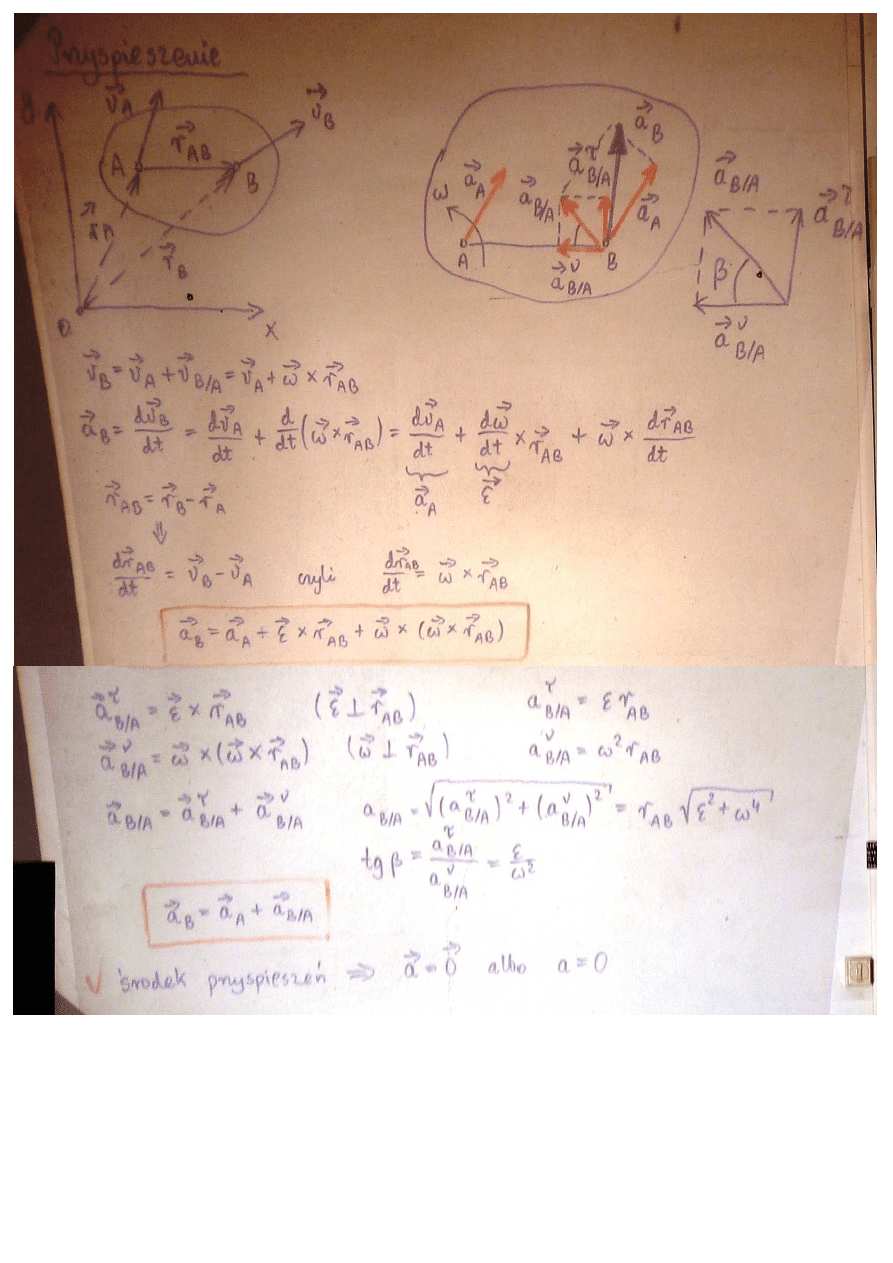 Przyspieszenie
y v⃗_A r⃗_AB v⃗_B
A B
r⃗_A r⃗_B
O x
ω a⃗_A a⃗_B/A a⃗^τ_B/A a⃗_B a⃗_A
A a⃗^ν_B/A B
a⃗_B/A a⃗^τ_B/A
β
a⃗^ν_B/A
v⃗_B = v⃗_A + v⃗_B/A = v⃗_A + ω⃗ × r⃗_AB
a⃗_B = dv⃗_B/dt = dv⃗_A/dt + d/dt (ω⃗ × r⃗_AB) = dv⃗_A/dt + dω⃗/dt × r⃗_AB + ω⃗ × dr⃗_AB/dt
a⃗_A ε⃗
r⃗_AB = r⃗_B - r⃗_A
⇓
dr⃗_AB/dt = v⃗_B - v⃗_A czyli dr⃗_AB/dt = ω⃗ × r⃗_AB
a⃗_B = a⃗_A + ε⃗ × r⃗_AB + ω⃗ × (ω⃗ × r⃗_AB)
a⃗^τ_B/A = ε⃗ × r⃗_AB (ε⃗ ⊥ r⃗_AB) a^τ_B/A = ε r_AB
a⃗^ν_B/A = ω⃗ × (ω⃗ × r⃗_AB) (ω⃗ ⊥ r⃗_AB) a^ν_B/A = ω² r_AB
a⃗_B/A = a⃗^τ_B/A + a⃗^ν_B/A a_B/A = √((a^τ_B/A)² + (a^ν_B/A)²) = r_AB √(ε² + ω⁴)
tg β = a^τ_B/A / a^ν_B/A = ε/ω²
a⃗_B = a⃗_A + a⃗_B/A
v środek przyspieszeń ⇒ a⃗ = 0⃗ albo a = 0